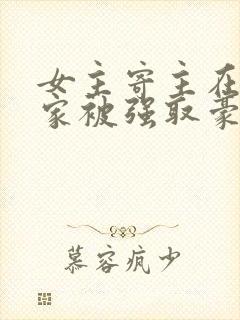 女主寄主在
家被强取豪
慕容疯少